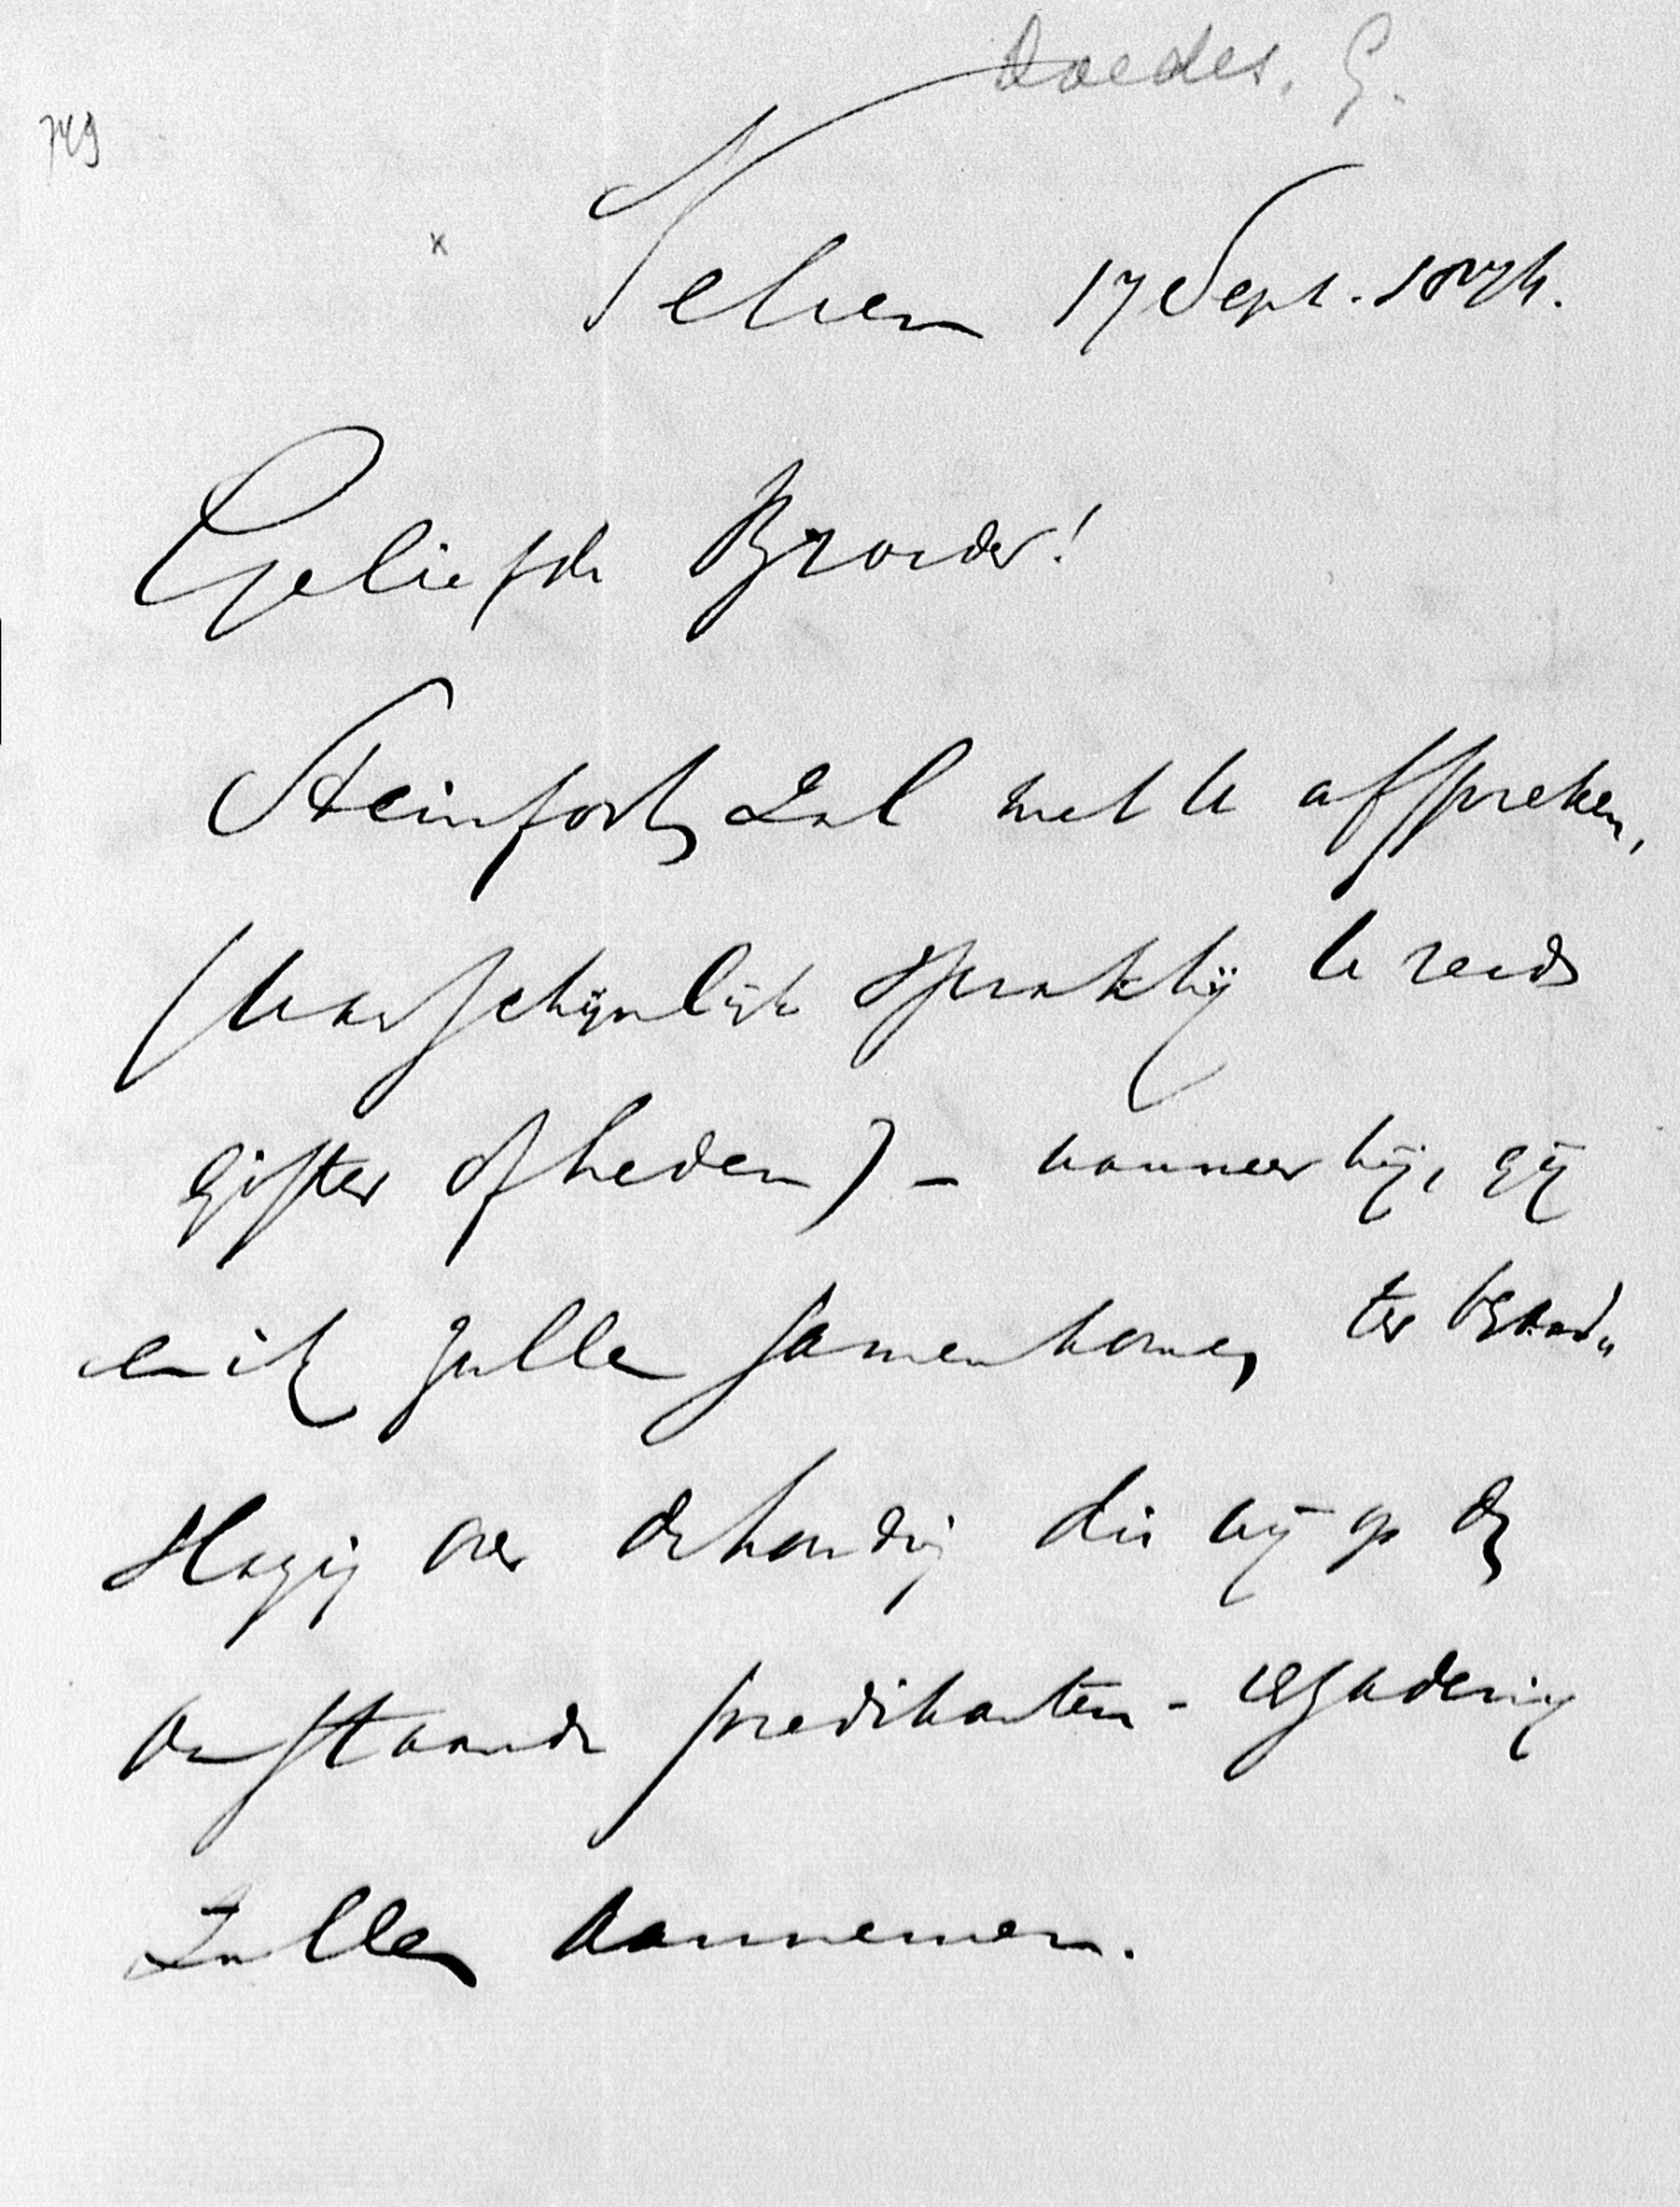 Doedes. G.
749
x
Velsen 17 Sept. 1874.
Geliefde Broeder!
Steinfort zal met U afspreken,
(waarschijnlijk sprak hij U reeds
gister of heden) – wanneer hij, gij
en ik zullen samenkomen, ter
over de houding die wij op de
aanstaande predikanten-vergadering
zullen aannemen.